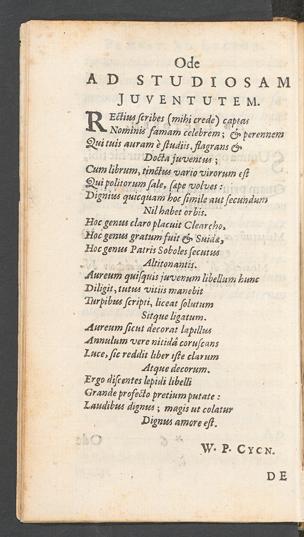 Ode
AD STUDIOSAM
JUVENTUTEM.
REctius scribes (mihi crede) captas
Nominis famam celebrem; & perennem
Qui tuis auram è studiis, flagrans &
Docta juventus;
Cum librum, tinctus vario virorum est
Qui politorum sale, sæpe volves:
Dignius quicquam hoc simile aut secundum
Nil habet orbis.
Hoc genus claro placuit Clearcho,
Hoc genus gratum fuit & Suidæ,
Hoc genus Patris Soboles secutus
Altitonantis.
Aureum quisquis juvenum libellum hunc
Diligit, tutus vitiis manebit
Turpibus scripti, liceat solutum
Sitque ligatum.
Aureum sicut decorat lapillus
Annulum vere nitidâ coruscans
Luce, sic reddit liber iste clarum
Atque decorum.
Ergo discentes lepidi libelli
Grande profecto pretium putate:
Laudibus dignus; magis ut colatur
Dignus amore est.
W. P. CYCN.
DE